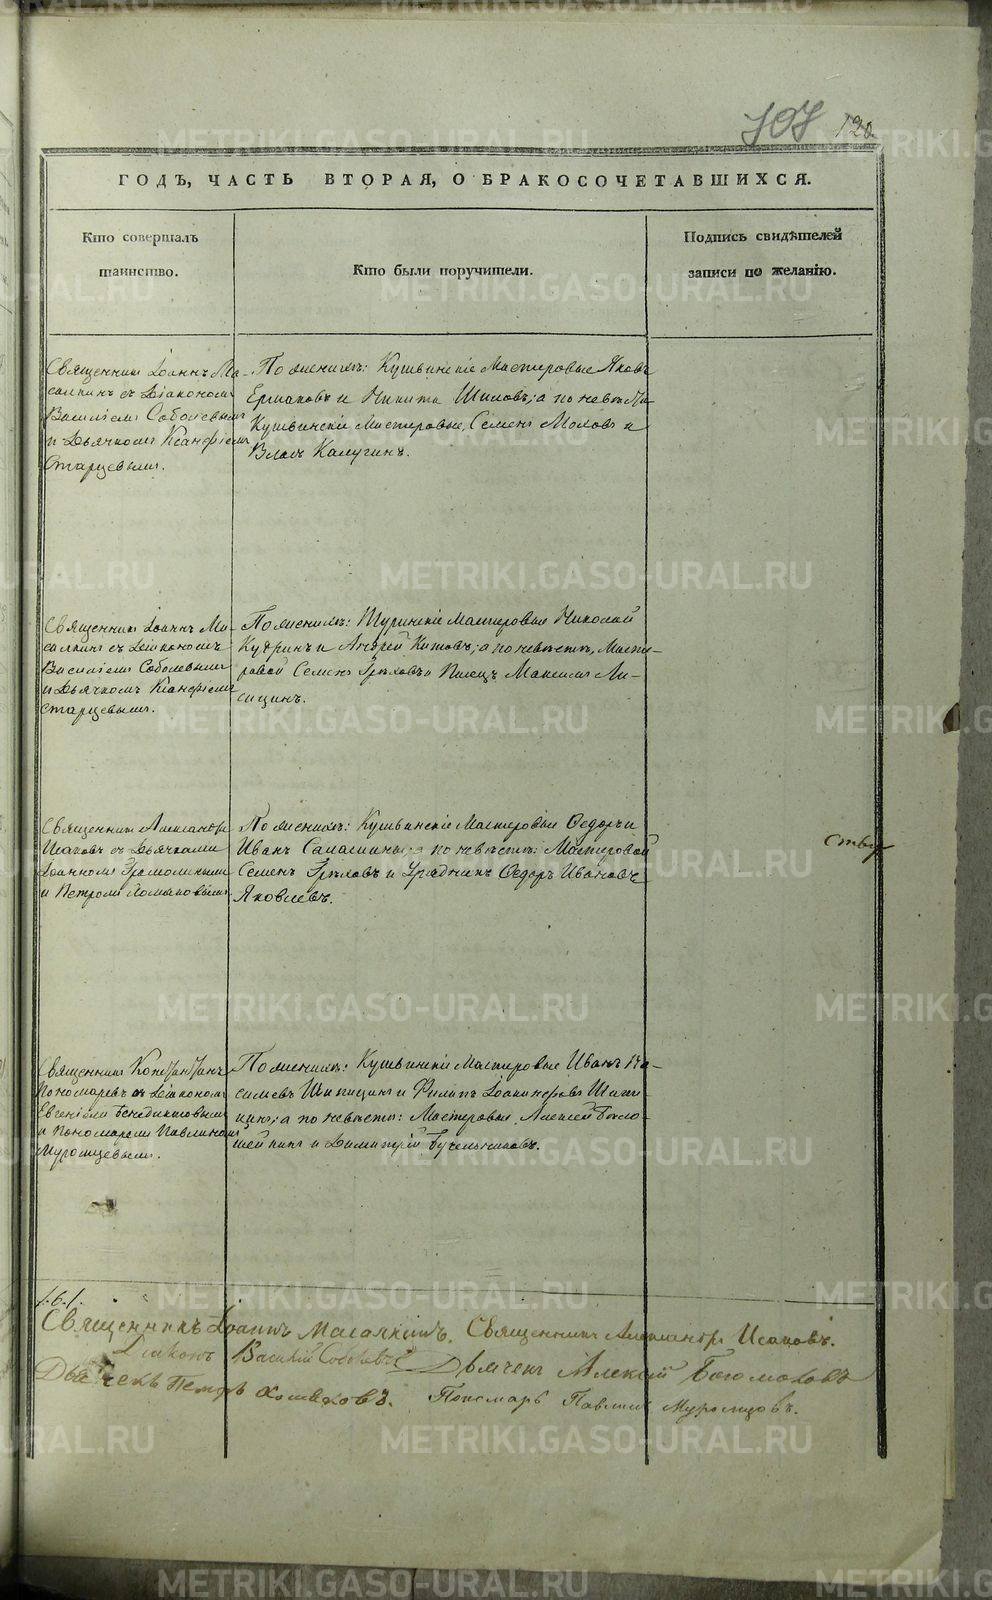 707 120.
ГОДЪ, ЧАСТЬ ВТОРАЯ, О БРАКОСОЧЕТАВШИХСЯ.
Кто совершалъ
таинство.
Кто были поручители.
Подпись свидѣтелей
записи по желанію.
Священникъ Іоаннъ Ма-
салкинъ съ Діакономъ
Василіемъ Соболевымъ
и Дьячкомъ Ксанфіемъ
Старцевымъ.
По женихѣ: Кушвинскіе Мастеровые Яковъ
Ермаковъ и Никита Шиловъ; а по невѣстѣ
Кушвинскіе Мастеровые, Семенъ Моловъ и
Власъ Калугинъ.
Священникъ Іоаннъ Ма-
салкинъ съ Діакономъ
Василіемъ Соболевымъ
и Дьячкомъ Ксанфіемъ
Старцевымъ.
По женихѣ: Туринскіе Мастеровые Николай
Кудринъ и Андрей Китовъ; а по невѣстѣ, Масте-
ровой Семенъ Грѣховъ и Писецъ Максимъ Ли-
сицинъ.
Священникъ Александръ
Исаковъ съ Дьячками
Іоанномъ
и Петромъ
По женихѣ: Кушвинскіе Мастеровые Ѳедоръ и
Иванъ Саламатины; а по невѣстѣ: Мастеровой
Семенъ Грѣховъ и Урядникъ Ѳедоръ Ивановъ
Яковлевъ.
Священникъ Константинъ
Пономаревъ съ Діакономъ
Евгеніемъ Бенедиктовымъ
и Пономаремъ Павлиномъ
Муромцевымъ.
По женихѣ: Кушвинскіе Мастеровые Иванъ Ва-
сильевъ Шипицинъ и Филипъ Шипи-
цинъ; а по невѣстѣ: Мастеровые Алексей Бело-
шейкинъ и Димитрій Бучельниковъ.
ству
Священникъ Іоаннъ Масалкинъ. Священникъ Александръ Исаковъ.
Діаконъ Василій Соболевъ Дьячекъ Алексій Богомоловъ
Дьячекъ Петръ Пономарь Павлинъ Муромцовъ.
METRIKI.GASO-URAL.RU